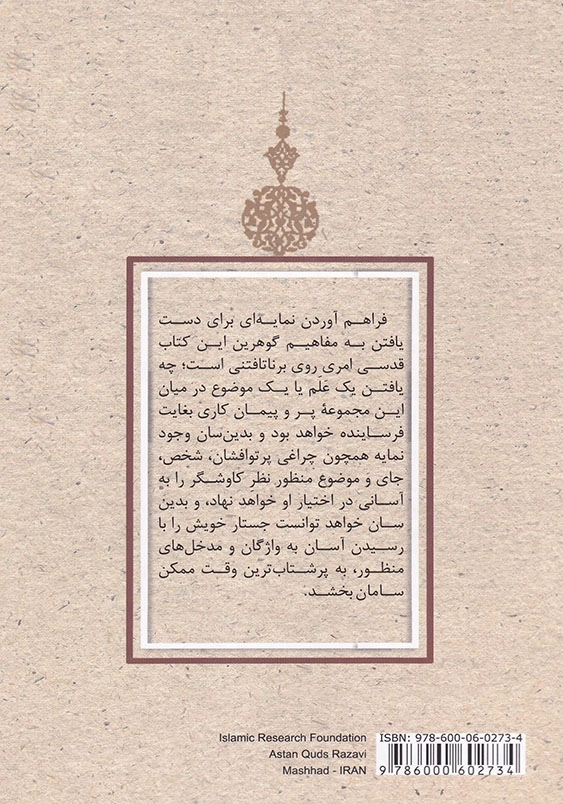 فراهم آوردن نمایه‌ای برای دست
یافتن به مفاهیم گوهرین این کتاب
قدسی امری روی برناتافتنی است؛ چه
یافتن یک عَلَم یا یک موضوع در میان
این مجموعهٔ پر و پیمان کاری بغایت
فرساینده خواهد بود و بدین‌سان وجود
نمایه همچون چراغی پرتوافشان، شخص،
جای و موضوع منظور نظر کاوشگر را به
آسانی در اختیار او خواهد نهاد، و بدین
سان خواهد توانست جستار خویش را با
رسیدن آسان به واژگان و مدخل‌های
منظور، به پرشتاب‌ترین وقت ممکن
سامان بخشد.
Islamic Research Foundation
Astan Quds Razavi
Mashhad - IRAN
ISBN: 978-600-06-0273-4
9 786000 602734